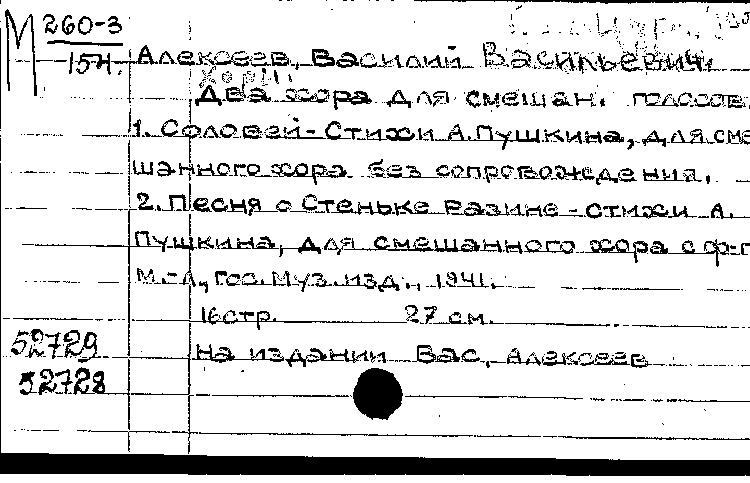 М 260-3
154.
Алексеев, Василий Васильевич.
Хоры.
Два хора для смешан. голосов.
1. Соловей - стихи А. Пушкина, для сме
шанного хора без сопровождения.
2. Песня о Стеньке Разине - стихи А.
Пушкина, для смешанного хора с ф-п
М.-Л., Гос. Муз. изд., 1941.
16 стр. 27 см.
52729 На издании Вас. Алексеев
52728